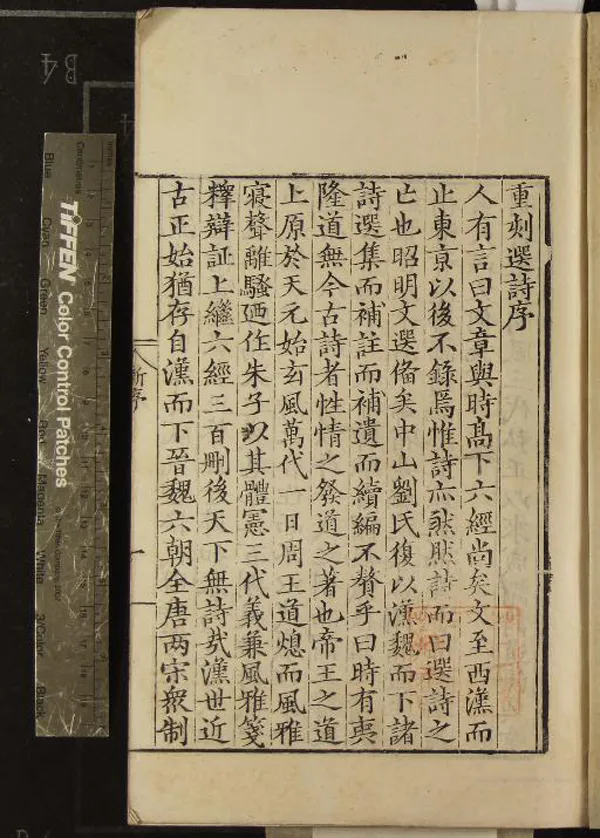 重刻選詩序
人有言曰文章與時髙下六經尚矣文至西漢而
止東京以後不錄焉惟詩亦然然詩而曰選詩之
亡也昭明文選俻矣中山劉氏復以漢魏而下諸
詩選集而補註而補遺而續編不贅乎曰時有夷
隆道無今古詩者性情之發道之著也帝王之道
上原於天元始玄風萬代一日周王道熄而風雅
寢聲離騷廼作朱子以其體憲三代義兼風雅箋
釋辯証上繼六經三百刪後天下無詩㢤漢世近
古正始猶存自漢而下晉魏六朝全唐兩宋衆制
新序
一
TIFFEN Color Control Patches
Inches
Centimetres
Blue
Cyan
Green
Yellow
Red
Magenta
White
3/Color
Black
B4